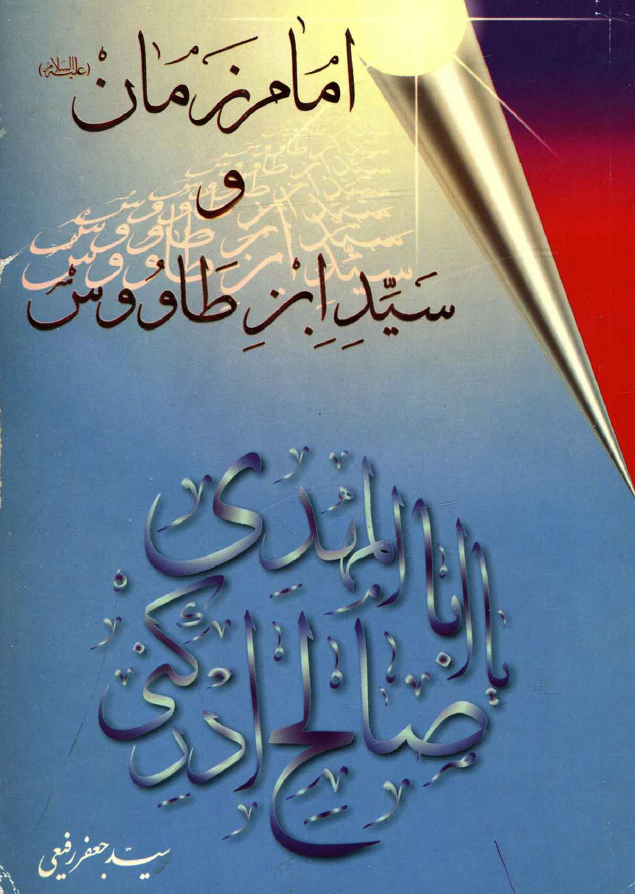 امام زمان (علیه السلام)
و
سَیِّدِ اِبنِ طَاوُوس
یا ابا المهدی
صالح ادرکنی
سید جعفر رفیعی